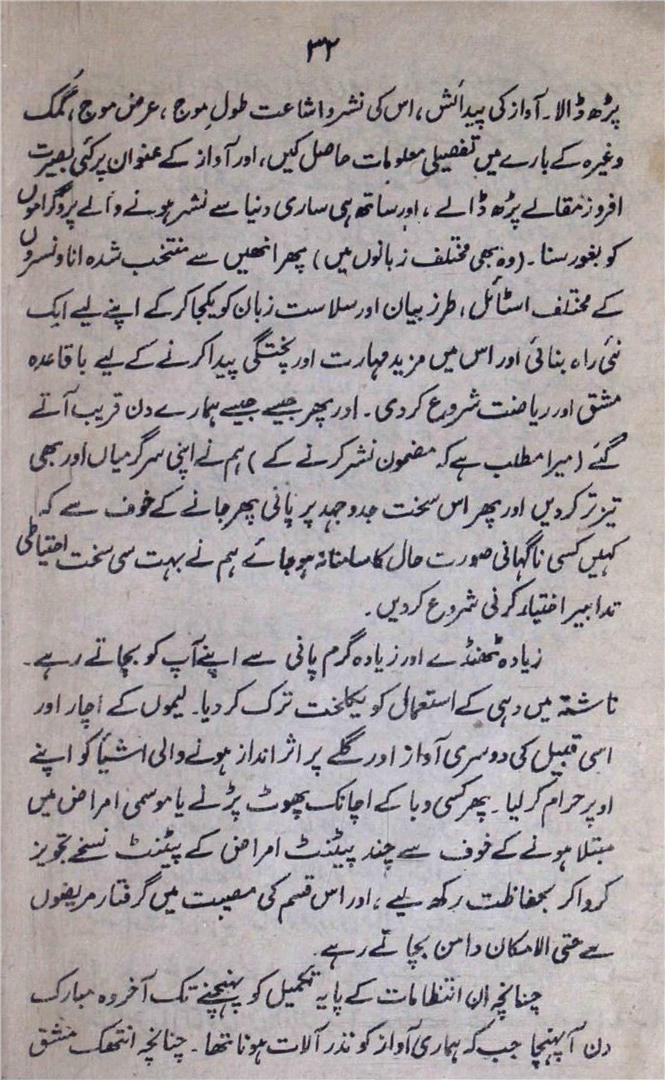 ۳۲
پڑھ ڈالا۔ آواز کی پیدائش، اس کی نشر و اشاعت طولِ موج، عرض موج، گمک
وغیرہ کے بارے میں تفصیلی معلومات حاصل کیں، اور آواز کے عنوان پر کئی بصیرت
افروز مقالے پڑھ ڈالے، اور ساتھ ہی ساری دنیا سے نشر ہونے والے پروگراموں
کو بغور سنا۔ (وہ بھی مختلف زبانوں میں) پھر انھیں سے منتخب شدہ اناونسروں
کے مختلف اسٹائل، طرز بیان اور سلاست زبان کو یکجا کرکے اپنے لیے ایک
نئی راہ بنائی اور اس میں مزید مہارت اور پختگی پیدا کرنے کے لیے باقاعدہ
مشق اور ریاضت شروع کردی۔ اور پھر جیسے جیسے ہمارے دن قریب آتے
گئے (میرا مطلب ہے کہ مضمون نشر کرنے کے) ہم نے اپنی سرگرمیاں اور بھی
تیز تر کردیں اور پھر اس سخت جدوجہد پر پانی پھر جانے کے خوف سے کہ
کہیں کسی ناگہانی صورت حال کا سامنا نہ ہوجائے ہم نے بہت سی سخت احتیاطی
تدابیر اختیار کرنی شروع کردیں۔
زیادہ ٹھنڈے اور زیادہ گرم پانی سے اپنے آپ کو بچاتے رہے۔
ناشتہ میں دہی کے استعمال کو یکلخت ترک کردیا۔ لیموں کے اچار اور
اسی قبیل کی دوسری آواز اور گلے پر اثر انداز ہونے والی اشیأ کو اپنے
اوپر حرام کرلیا۔ پھر کسی وبا کے اچانک پھوٹ پڑنے یا موسمی امراض میں
مبتلا ہونے کے خوف سے چند پیٹنٹ امراض کے پیٹنٹ نسخے تجویز
کرواکر بحفاظت رکھ لیے، اور اس قسم کی مصیبت میں گرفتار مریضوں
سے حتی الامکان دامن بچاتے رہے۔
چنانچہ ان انتظامات کے پایہ تکمیل کو پہنچنے تک آخر وہ مبارک
دن آپہنچا جب کہ ہماری آواز کو نذر آلات ہونا تھا۔ چنانچہ انتھک مشق